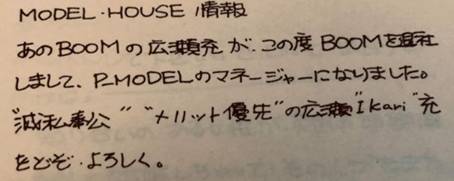 MODEL・HOUSE 情報
あのBOOMの広瀬充が、この度BOOMを退社
しまして、P-MODELのマネージャーになりました。
"滅私奉公" "メリット優先"の広瀬"Ikari"充
をどぞ・よろしく。